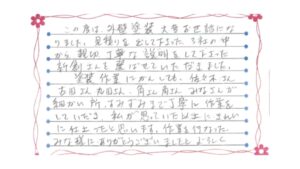 この度は、外壁塗装大変お世話にな
りました。見積りを出して下さった3社の中
から、親切丁寧な説明をして下さった
新創さんを選ばせていただきました。
塗装作業にかんしても、佐々木さん
吉田さん、丸田さん、角上角さん、みなさんが
細かい所、すみずみまで丁寧に作業を
していただき、私が思っていた以上にきれい
に仕上ったと思います。作業を行なった
みな様にありがとうございましたとよろしく